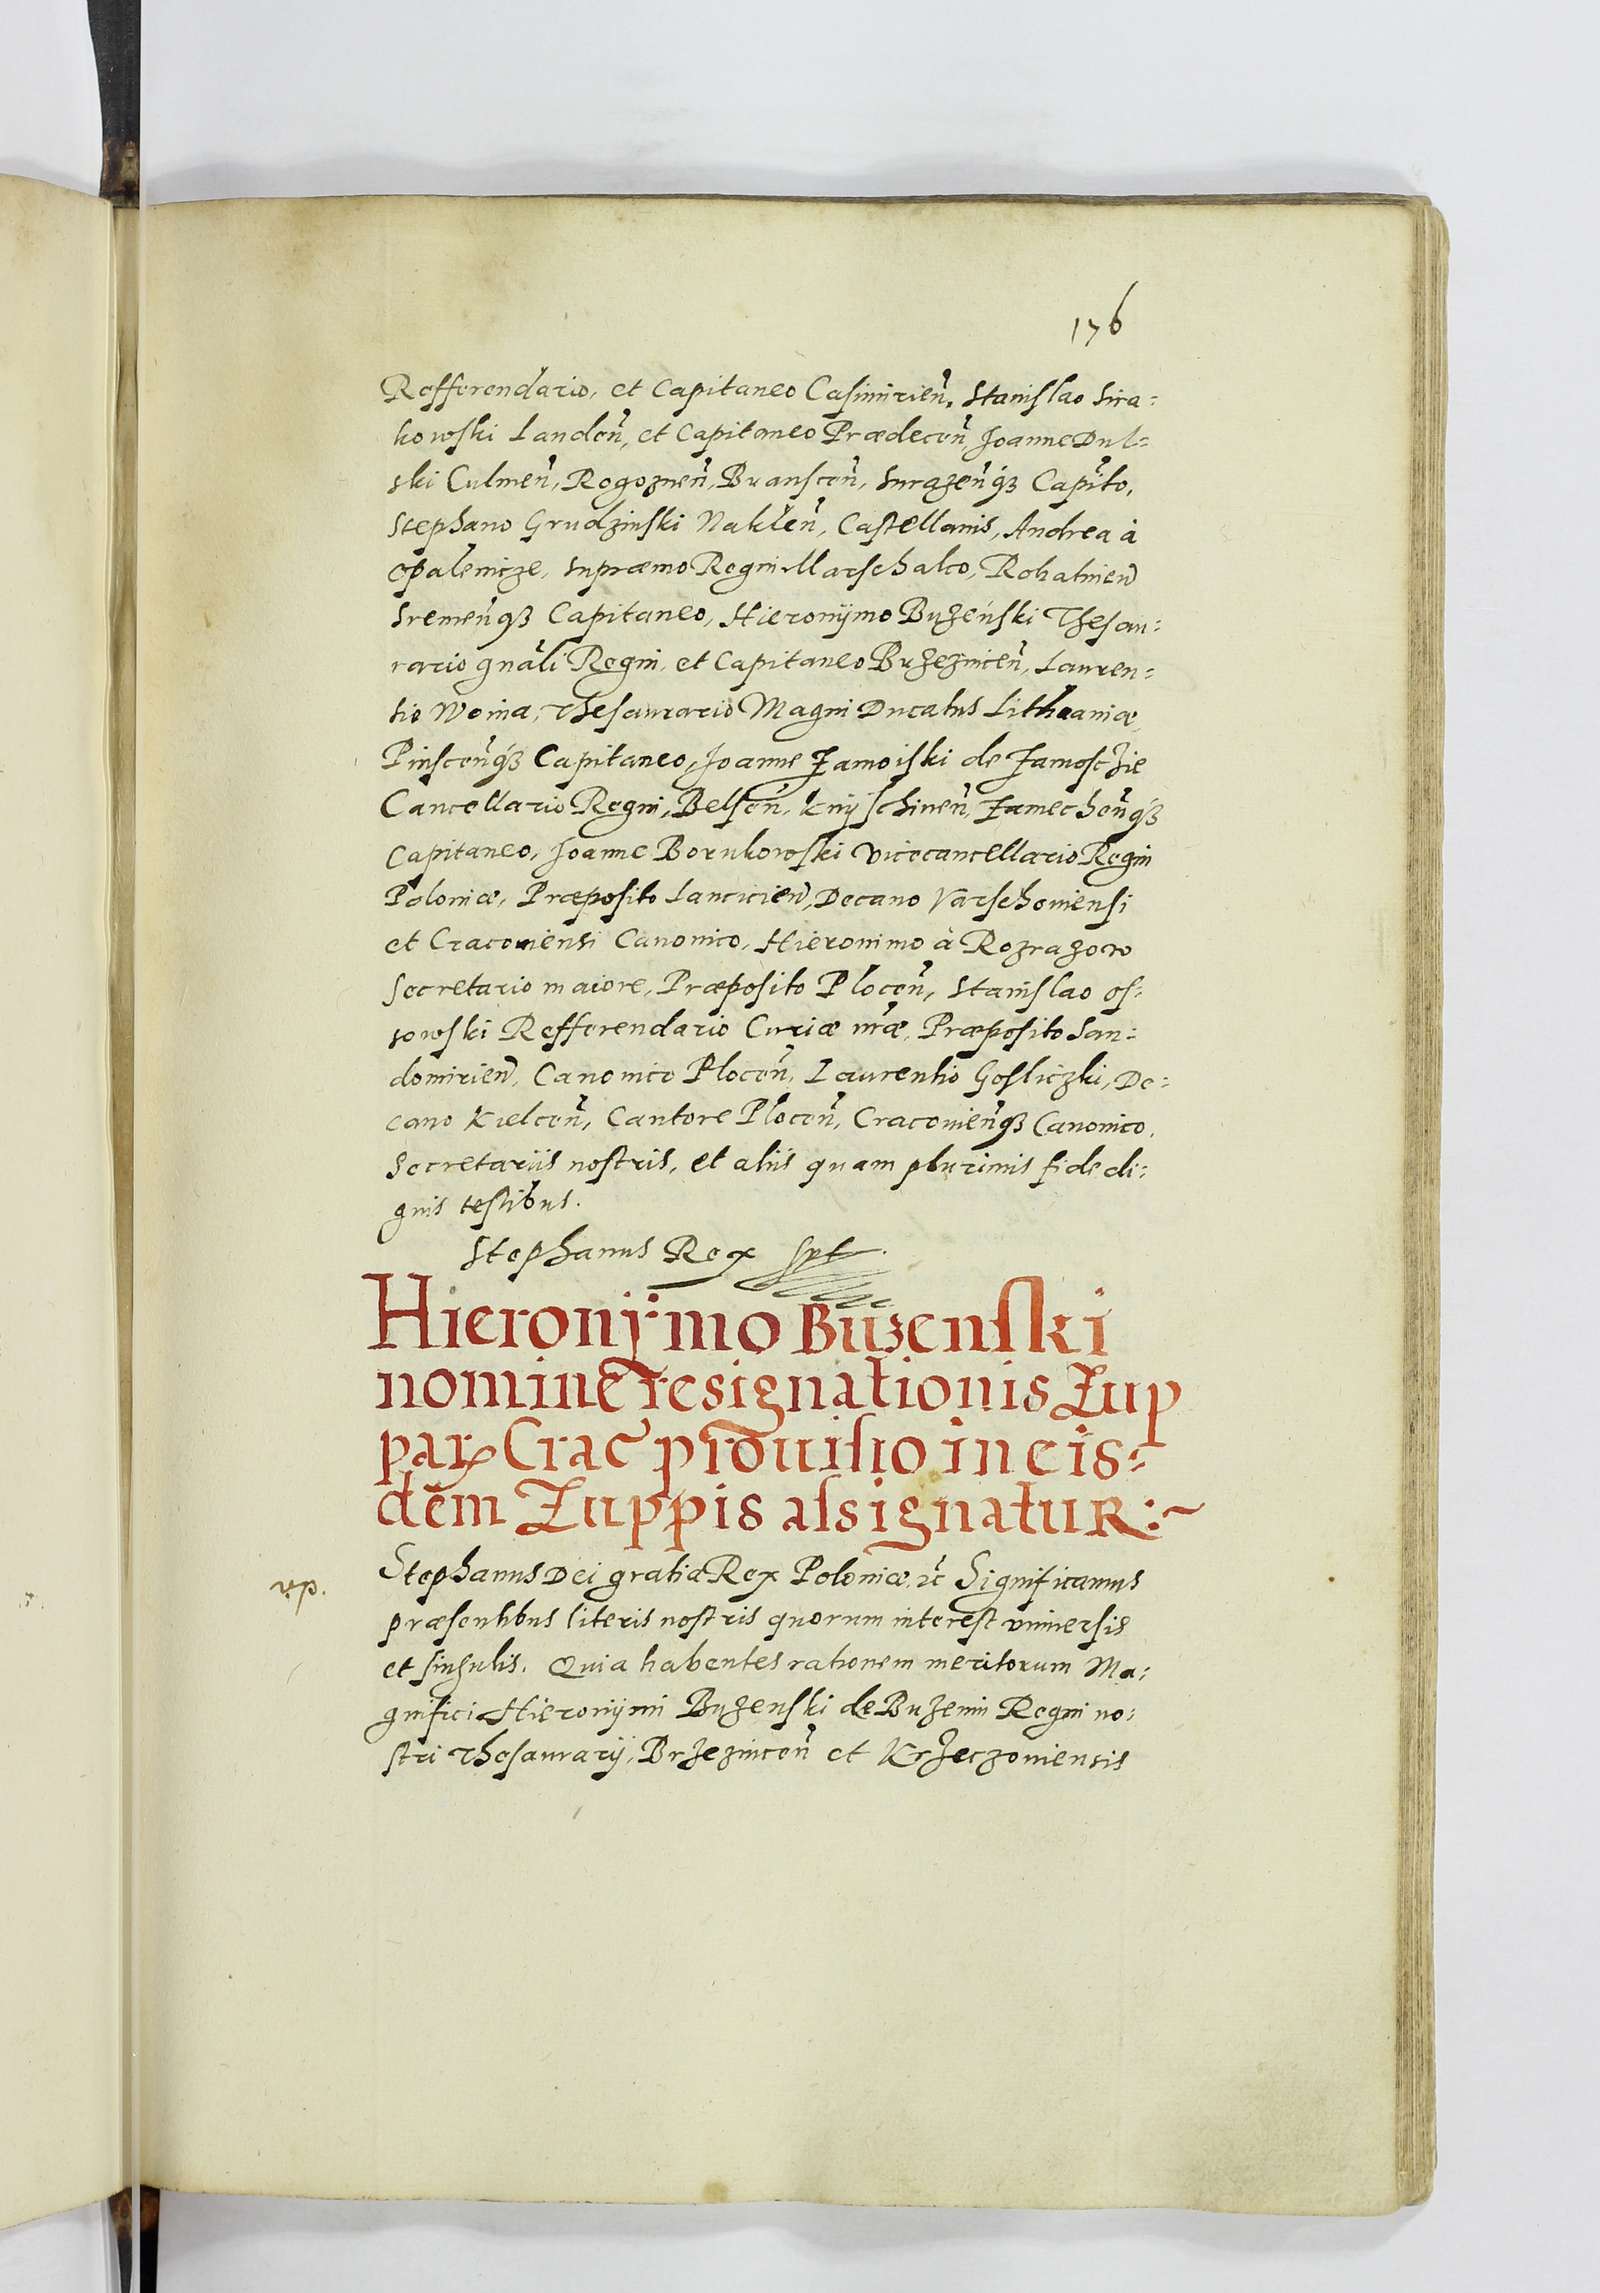 176
Refferendario, et Capitaneo Casimirien̄. Stanislao Sira-
kowski Landen̄, et Capitaneo Prædecen̄, Joanne Dul-
ski Culmen̄, Rogoznen̄, Bransce͂n̄, Surazen̄q3 Capit̄o,
Stephano Grudzinski Naklen̄, Castellanis, Andrea à
Opalenicze, Supræmo Regni Marschalco, Rohatinen̄
Sremen̄q3 Capitaneo, Hieronÿmo Buzeński Thesau-
rario gn̄ali Regni, et Capitaneo Brzeznicen̄, Lauren-
tio Woina, Thesaurario Magni Ducatus Lithuaniæ,
Pinscen̄q3 Capitaneo, Joanne Zamoiski de Zamosczie
Cancellario Regni, Belsen̄, Knÿschinen̄, Zamechen̄q3
Capitaneo, Joanne Borukowski Vicecancellario Regni
Poloniæ, Præposito Lancicien̄, Decano Varschoviensi
et Cracoviensi Canonico, Hieronimo à Rozrazowo
Secretario maiore, Præposito Plocen̄, Stanislao Os-
sowski Refferendario Curiæ nr̄æ, Præposito San-
domirien̄, Canonico Plocen̄, Laurentio Gosliczki, De-
cano Kielcen̄, Cantore Plocen̄, Cracovien̄q3 Canonico,
Secretariis nostris, et aliis quam plurimis fide di-
gnis testibus.
Stephanus Rex
Hieronÿmo Buzenski
nomine resignationis Zup
parꝝ Crac̄ prouisio in eis-
dēm Zuppis assignatur:~
Stephanus Dei gratia Rex Poloniæ, ꝛc̄ Significamus
præsentibus literis nostris quorum interest vniuersis
et singulis. Quia habentes rationem meritorum Ma-
gnifici Hieronÿmi Buzenski de Buzenin Regni no-
stri Thesaurarÿ, Brzeznicen̄ et Krzeczoviensis